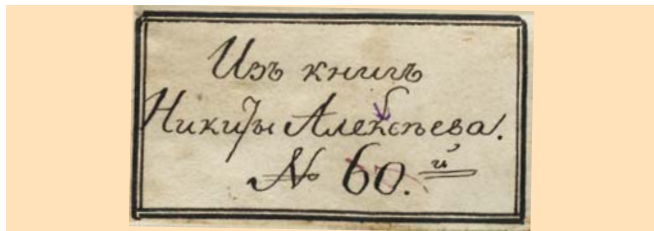 Изъ книгъ
Никиты Алексѣева.
№ 60.й